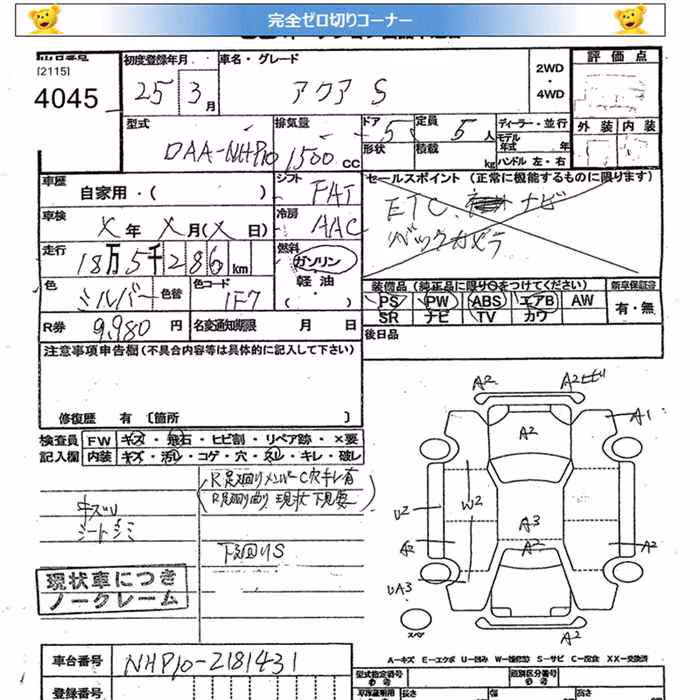 完全ゼロ切りコーナー
[2115]
4045
初度登録年月
25 3月
車名・グレード
アクア S
2WD
・
4WD
評価点
外装 内装
型式
DAA-NHP10
排気量
1500 CC
ドア 5
形状
定員 5人
積載 kg
ディーラー・並行
モデル年式 年
ハンドル 左・右
車歴
自家用・( )
シフト
FAT
セールスポイント (正常に機能するものに限ります)
ETC. ナビ
バックカメラ
車検
X年 X月(X日)
冷房
AAC
走行
18万5千286km
燃料
ガソリン
軽油
・( )
色
シルバー
色替
色コード
1F7
装備品 (純正品に限り○をつけてください)
新車保証書
PS PW ABS エアB AW
SR ナビ TV カワ
有・無
R券
9,980円
名変通知期限 月 日
後日品
注意事項申告欄 (不具合内容等は具体的に記入して下さい)
修復歴 有〔箇所 〕
検査員
記入欄
FW キズ・飛石・ヒビ割・リペア跡・×要
内装 キズ・汚レ・コゲ・穴・スレ・キレ・破レ
R足廻りメンバーC穴キレ有
R足廻り曲り 現状下見要
キズU
シートシミ
下廻りS
現状車につき
ノークレーム
A2
A2
A1
A2
U2
W2
A3
A2
A2
A2
UA3
A2
スペア
A-キズ E-エクボ U-凹み W-補修跡 S-サビ C-腐食 XX-交換済
車台番号
NHP10-2181431
登録番号
型式指定番号
類別区分番号
長さ
幅
高さ